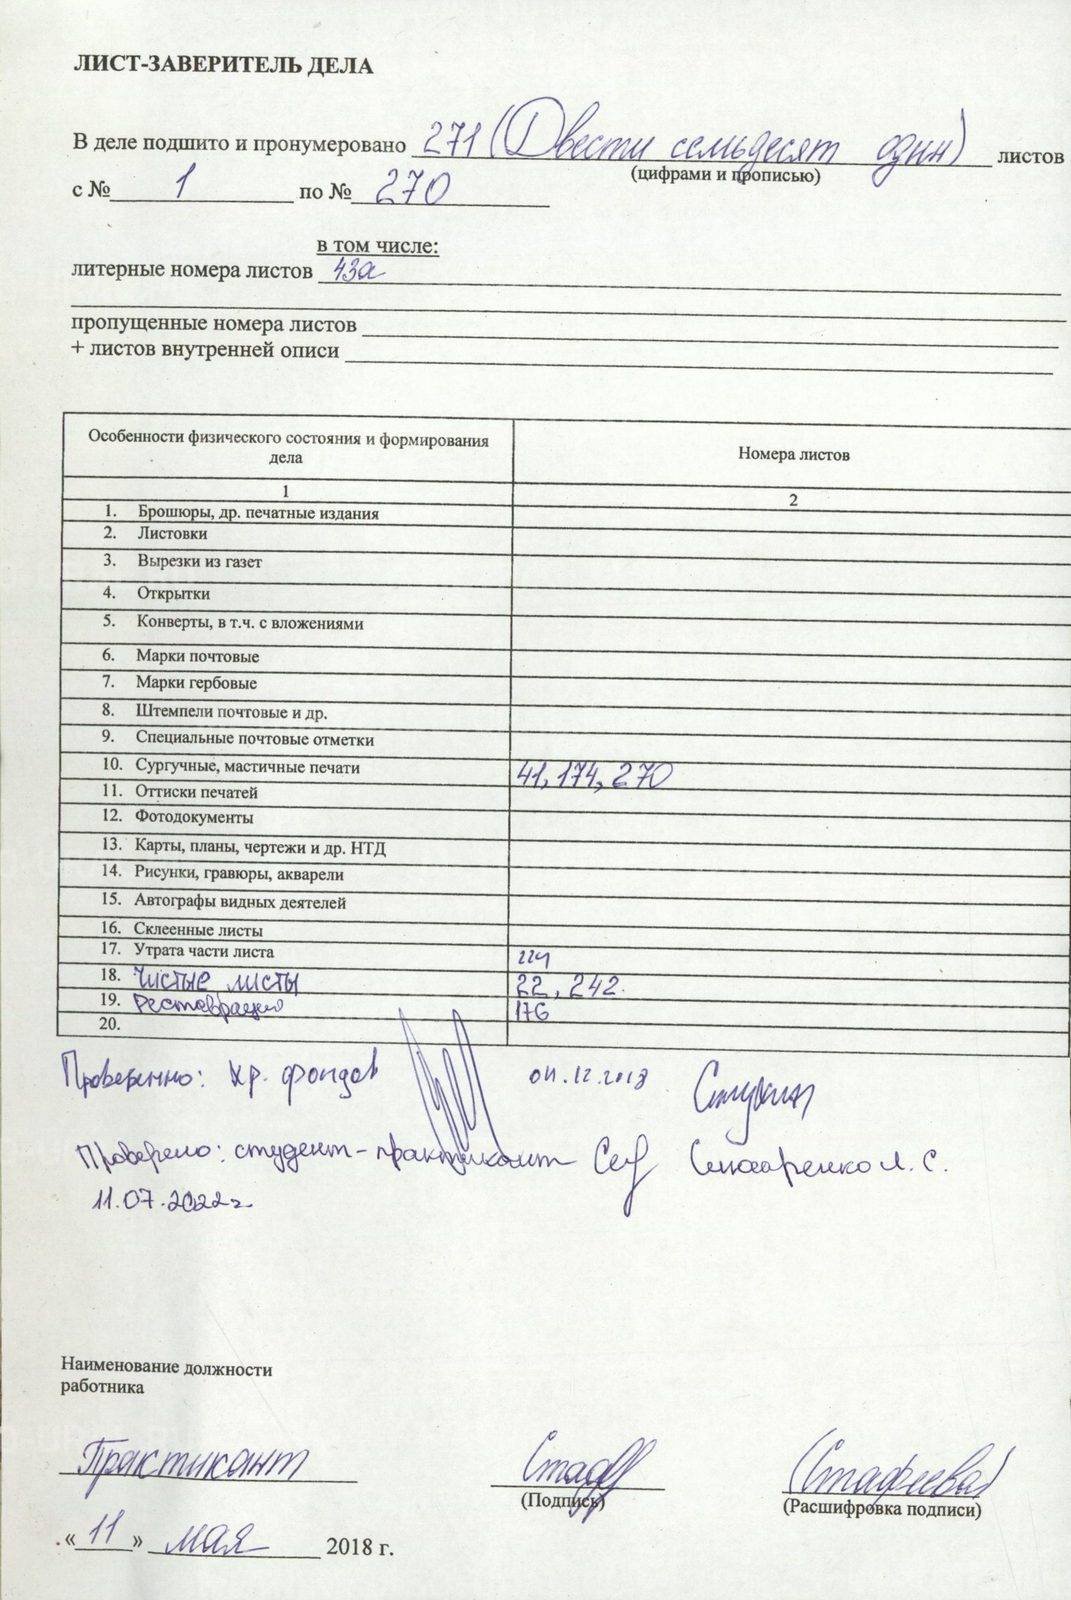 ЛИСТ-ЗАВЕРИТЕЛЬ ДЕЛА
В деле подшито и пронумеровано 271 (Двести семьдесят один) листов
(цифрами и прописью)
с № 1 по № 270
в том числе:
литерные номера листов 43а
пропущенные номера листов
+ листов внутренней описи
Особенности физического состояния и формирования дела Номера листов
1 2
1. Брошюры, др. печатные издания
2. Листовки
3. Вырезки из газет
4. Открытки
5. Конверты, в т.ч. с вложениями
6. Марки почтовые
7. Марки гербовые
8. Штемпели почтовые и др.
9. Специальные почтовые отметки
10. Сургучные, мастичные печати 41, 174, 270
11. Оттиски печатей
12. Фотодокументы
13. Карты, планы, чертежи и др. НТД
14. Рисунки, гравюры, акварели
15. Автографы видных деятелей
16. Склеенные листы
17. Утрата части листа 224
18. Чистые листы 22, 242.
19. Реставрация 176
20.
Проверенно: хр. фондов 04.12.2018
Проверено: студент-практикант Л. С.
11.07.2022г
Наименование должности
работника
Практикант (Стафеева)
(Подпись) (Расшифровка подписи)
«11» мая 2018 г.